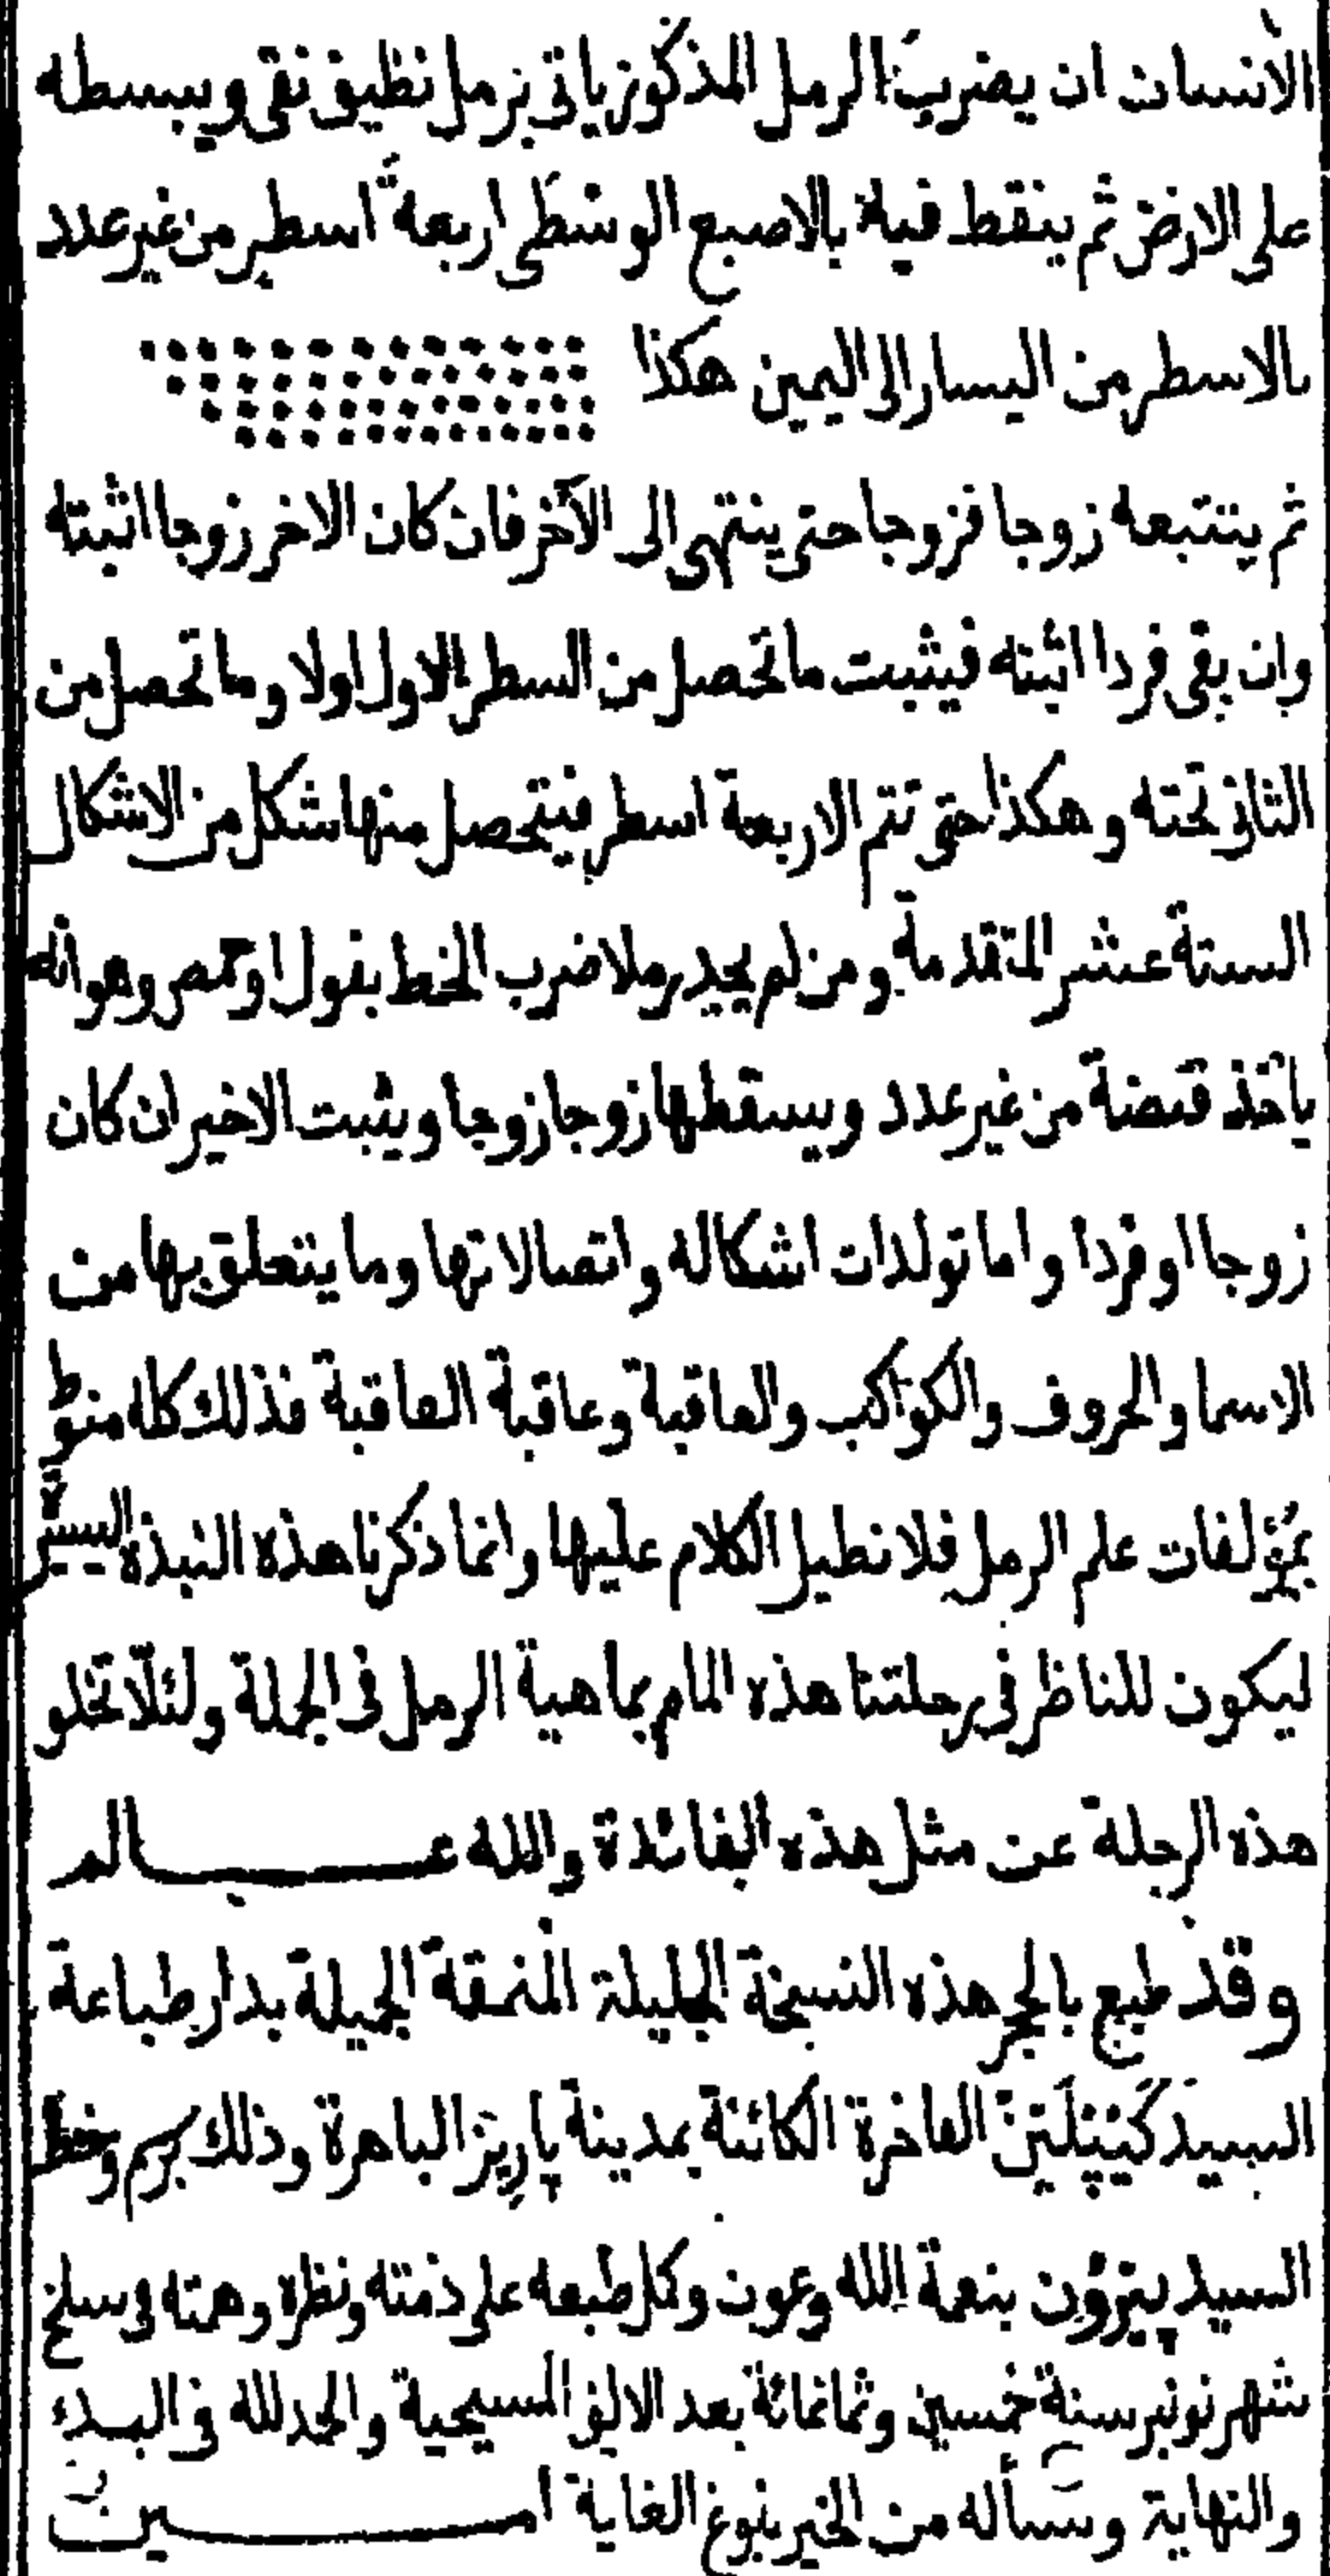 الانسان ان يضرب الرمل المذكور ياتى برمل نظيف نقى ويبسطه
على الارض ثم ينقط فيه بالاصبع الوسطى اربعة اسطر من غير عدد
بالاسطر من اليسار الى اليمين هكذا
ثم يتتبعه زوجا فزوجا حتى ينتهى الى الآخر فان كان الاخر زوجا اثبته
وان بقى فردا اثبته فيثبت ما تحصل من السطر الاول اولا وما تحصل من
الثانى تحته وهكذا حتى تتم الاربعة اسطر فيتحصل منها شكل من الاشكال
الستة عشر المتقدمة ومن لم يجد رملا ضرب الخط بفول او حمص وهو انه
ياخذ قبضة من غير عدد ويسقطها زوجا زوجا ويثبت الاخير ان كان
زوجا او فردا واما تولدات اشكاله واتصالاتها وما يتعلق بها من
الاسما والحروف والكواكب والعاقبة وعاقبة العاقبة فذلك كله منوط
بمؤلفات علم الرمل فلا نطيل الكلام عليها وانما ذكرنا هذه النبذة اليسيرة
ليكون للناظر فى رحلتنا هذه المام بماهية الرمل فى الجملة ولئلا تخلو
هذه الرحلة عن مثل هذه الفائدة والله عالم
وقد طبع بالحجر هذه النسخة الجليلة المنمقة الجميلة بدار طباعة
السيد كَيْپَلِين الفاخرة الكائنة بمدينة پاريز الباهرة وذلك برسم وخط
السيد پيرّون بنعمة الله وعون وكل طبعه على ذمته ونظره وهمته فى سلخ
شهر نونبر سنة خمسين وثمانمائة بعد الالف المسيحية والحمد لله فى البدء
والنهاية ونسأله من الخير بلوغ الغاية امين